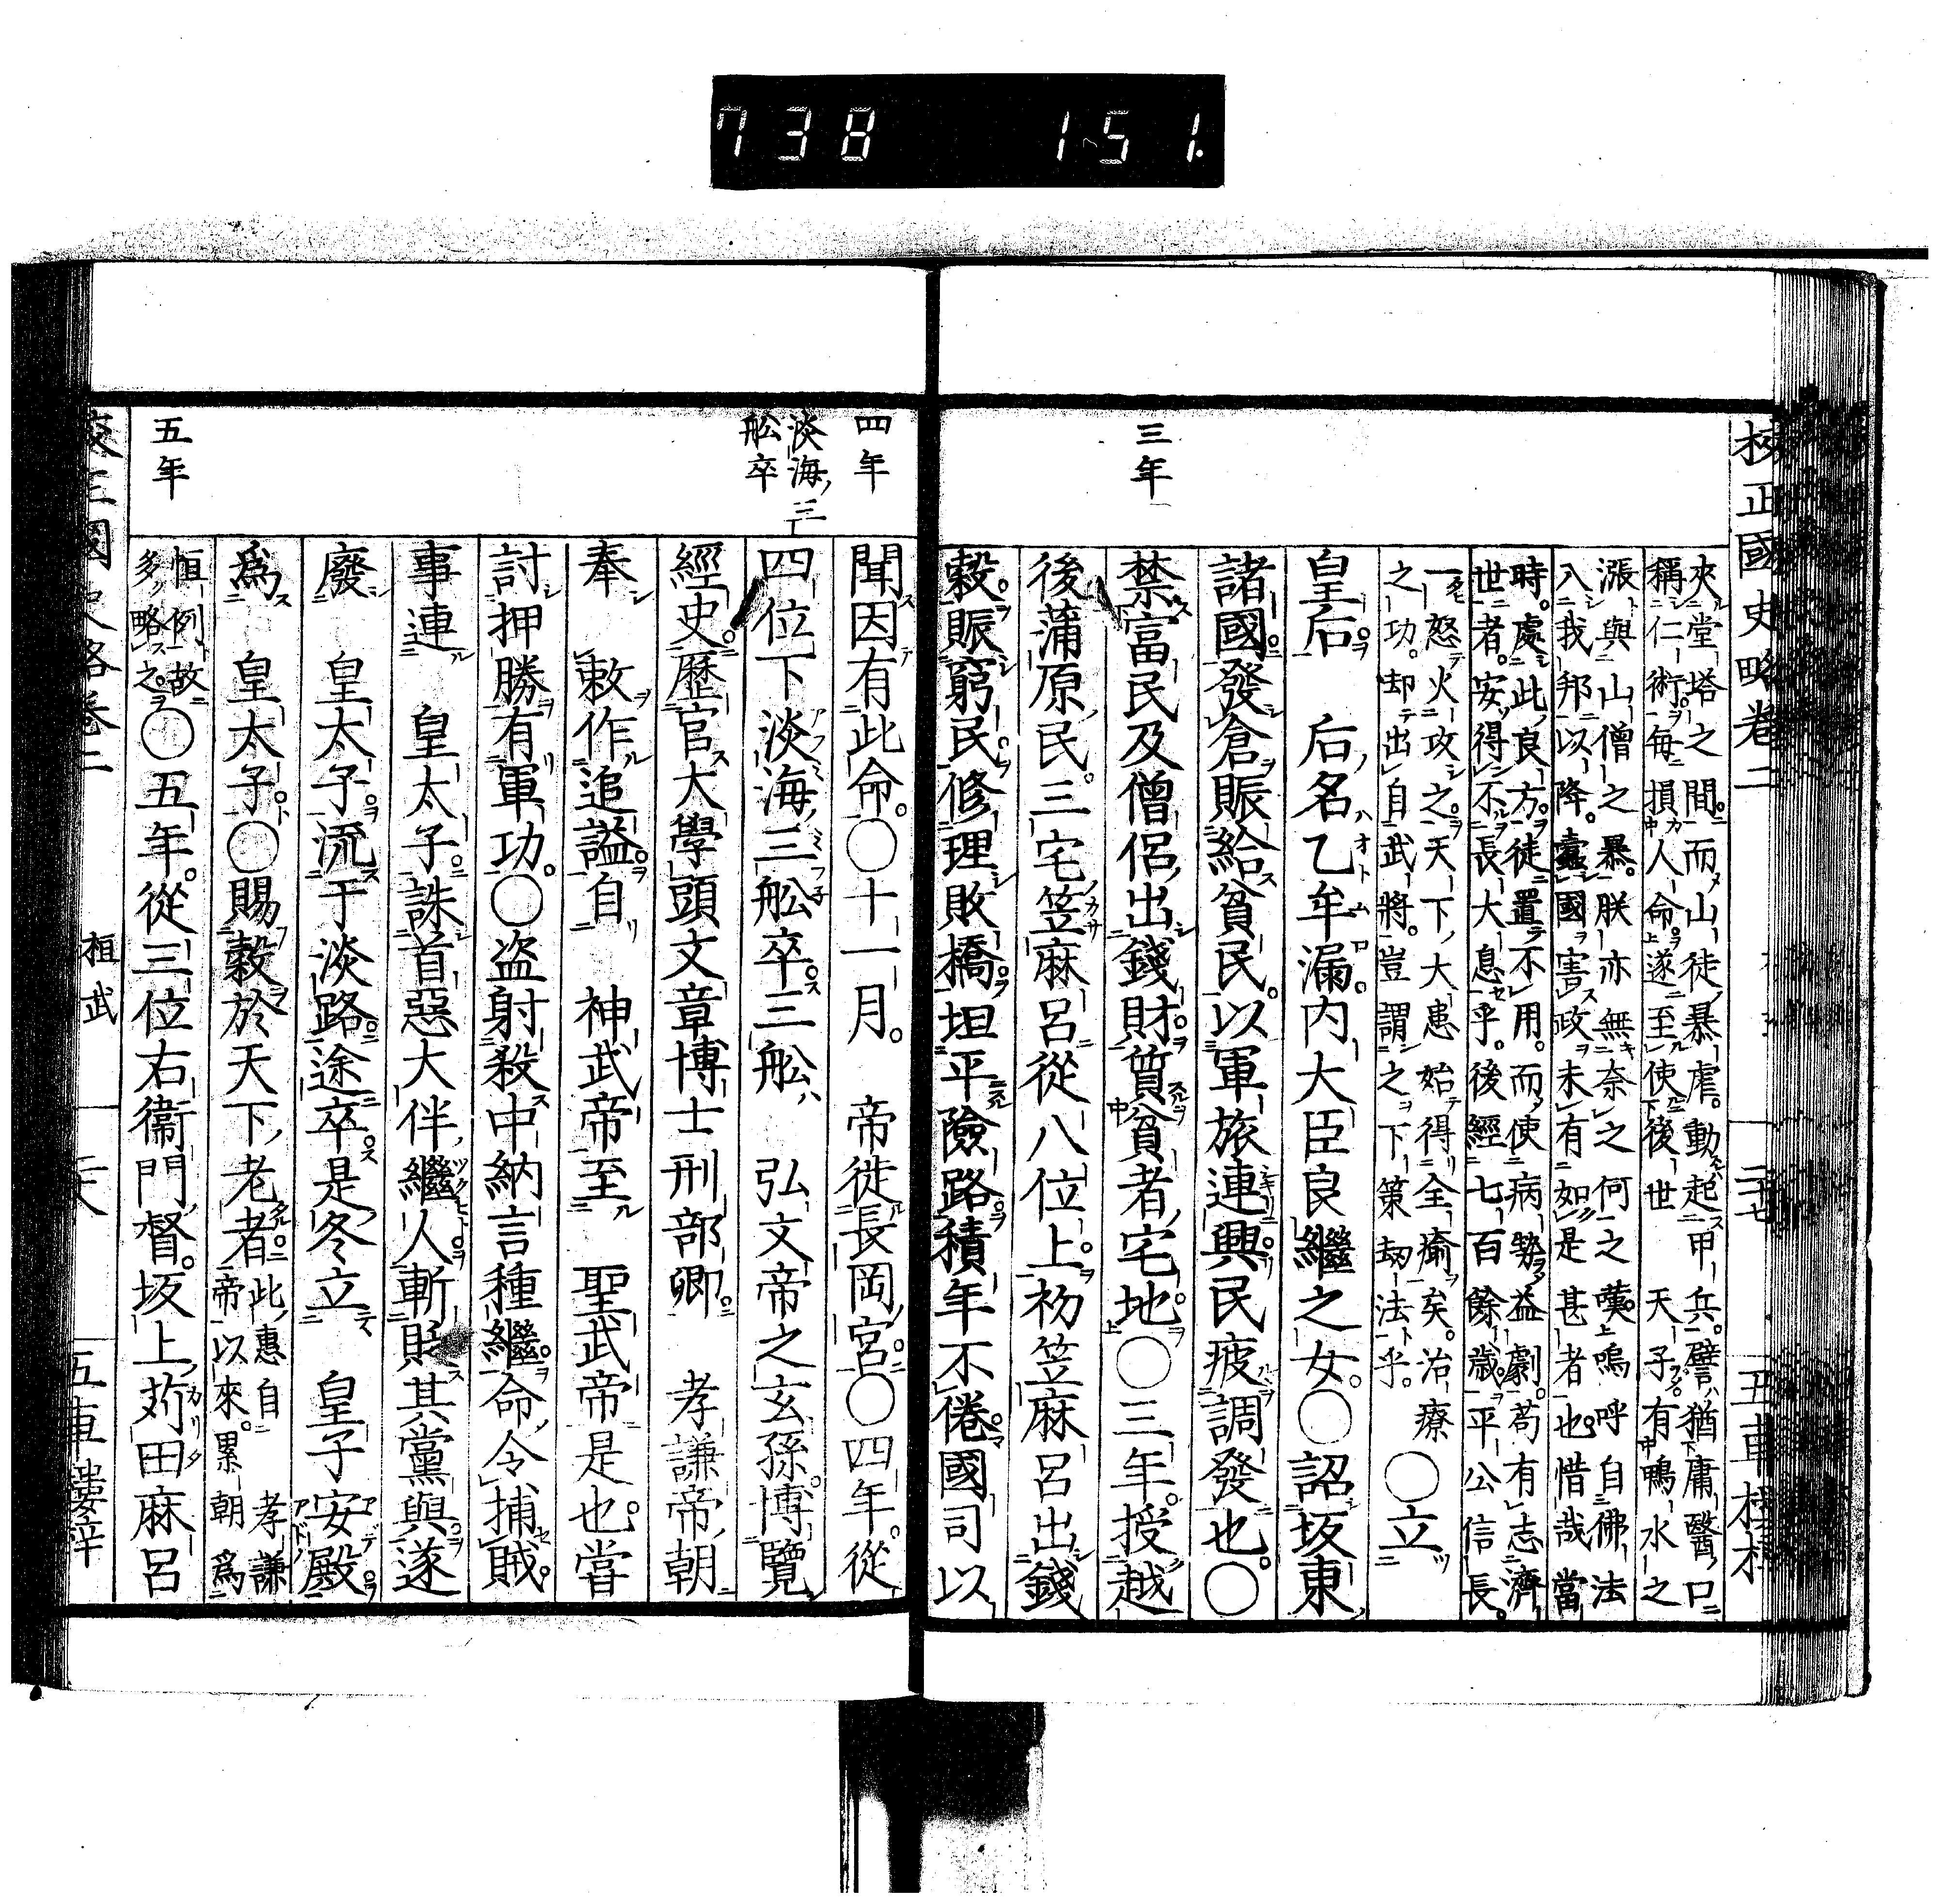 738 151.
校正國史略卷二
二十七
五車樓梓
夾堂塔之間而山徒暴虐動起甲兵譬猶庸醫口
稱仁術毎損人命遂至使後世 天子有鴨水之
漲與山僧之暴朕亦無奈之何之嘆嗚呼自佛法
入我邦以降蠹國害政未有如是甚者也惜哉當
時處此良方徒置不用而使病勢益劇苟有志濟
世者安得不長大息乎後經七百餘歳平公信長
一怒火攻之天下大患始得全瘉矣治療
之功却出自武將豈謂之下策劫法乎
○立
皇后 后名乙牟漏内大臣良繼之女○詔坂東
諸國發倉賑給貧民以軍旅連興民疲調發也○
三年
禁富民及僧侶出錢財質貧者宅地○三年授越
後蒲原民三宅笠麻呂從八位上初笠麻呂出錢
穀賑窮民修理敗橋坦平險路積年不倦國司以
四年
聞因有此命○十一月 帝徙長岡宮○四年從
淡海三
舩卒
四位下淡海三舩卒三舩 弘文帝之玄孫博覽
經史歷官大學頭文章博士刑部卿 孝謙帝朝
奉 敕作追謚自 神武帝至 聖武帝是也嘗
討押勝有軍功○盜射殺中納言種繼命令捕賊
事連 皇太子誅首惡大伴繼人斬其黨與遂
廢 皇太子流于淡路途卒是冬立 皇子安殿
爲 皇太子○賜穀於天下老者
此惠自 孝謙
帝以來累朝爲
五年
恒例故
多略之
○五年從三位右衞門督坂上苅田麻呂
桓武